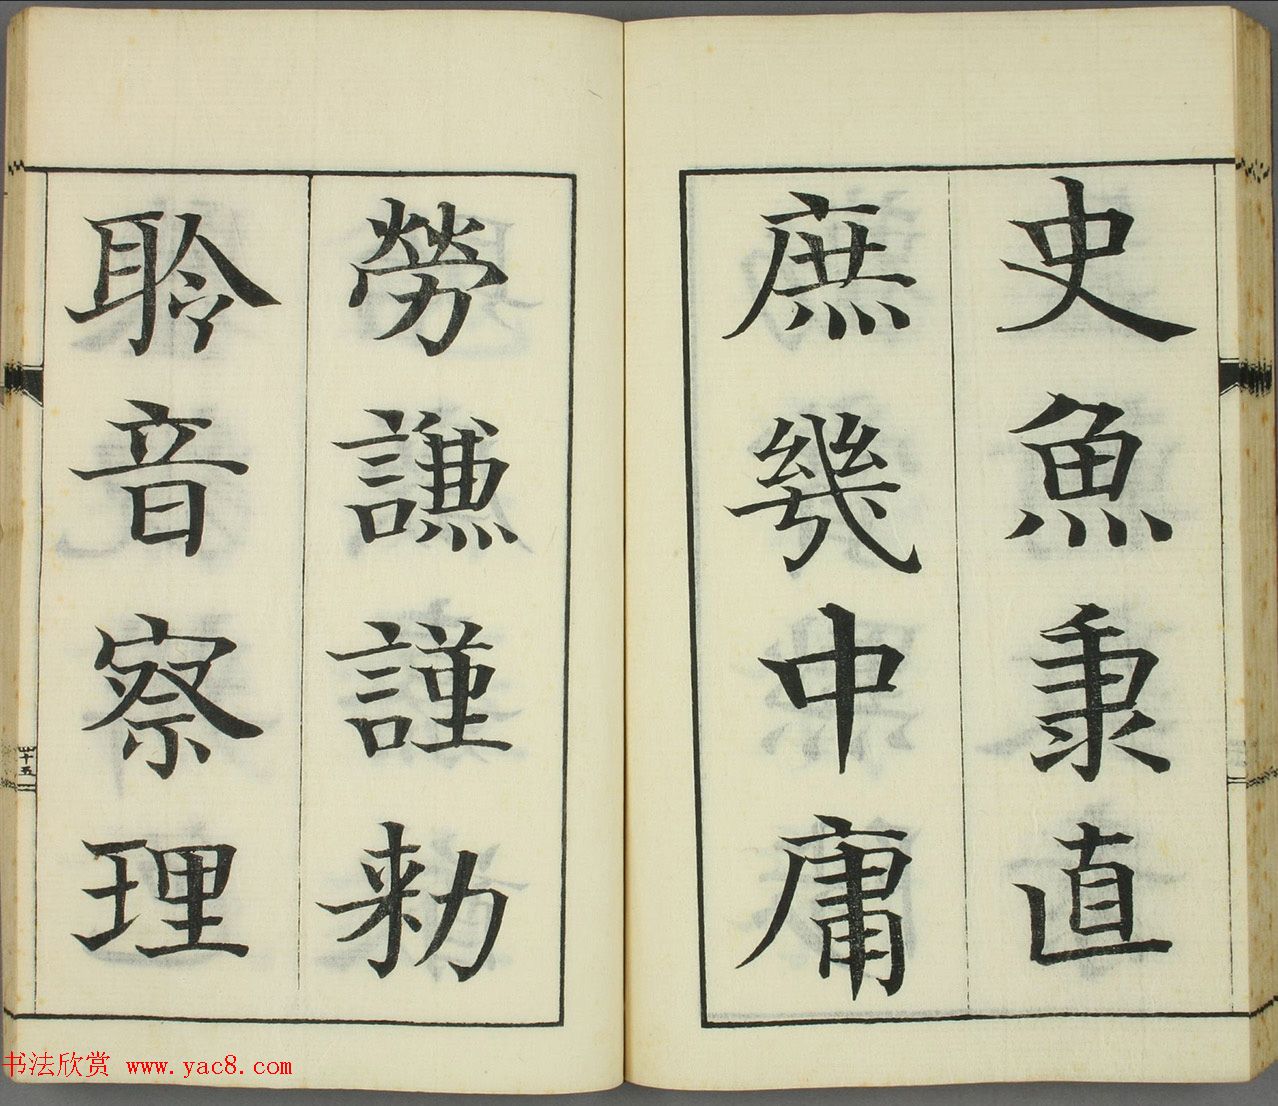 史魚秉直
庶幾中庸
勞謙謹勅
聆音察理
十五
书法欣赏 www.yac8.com